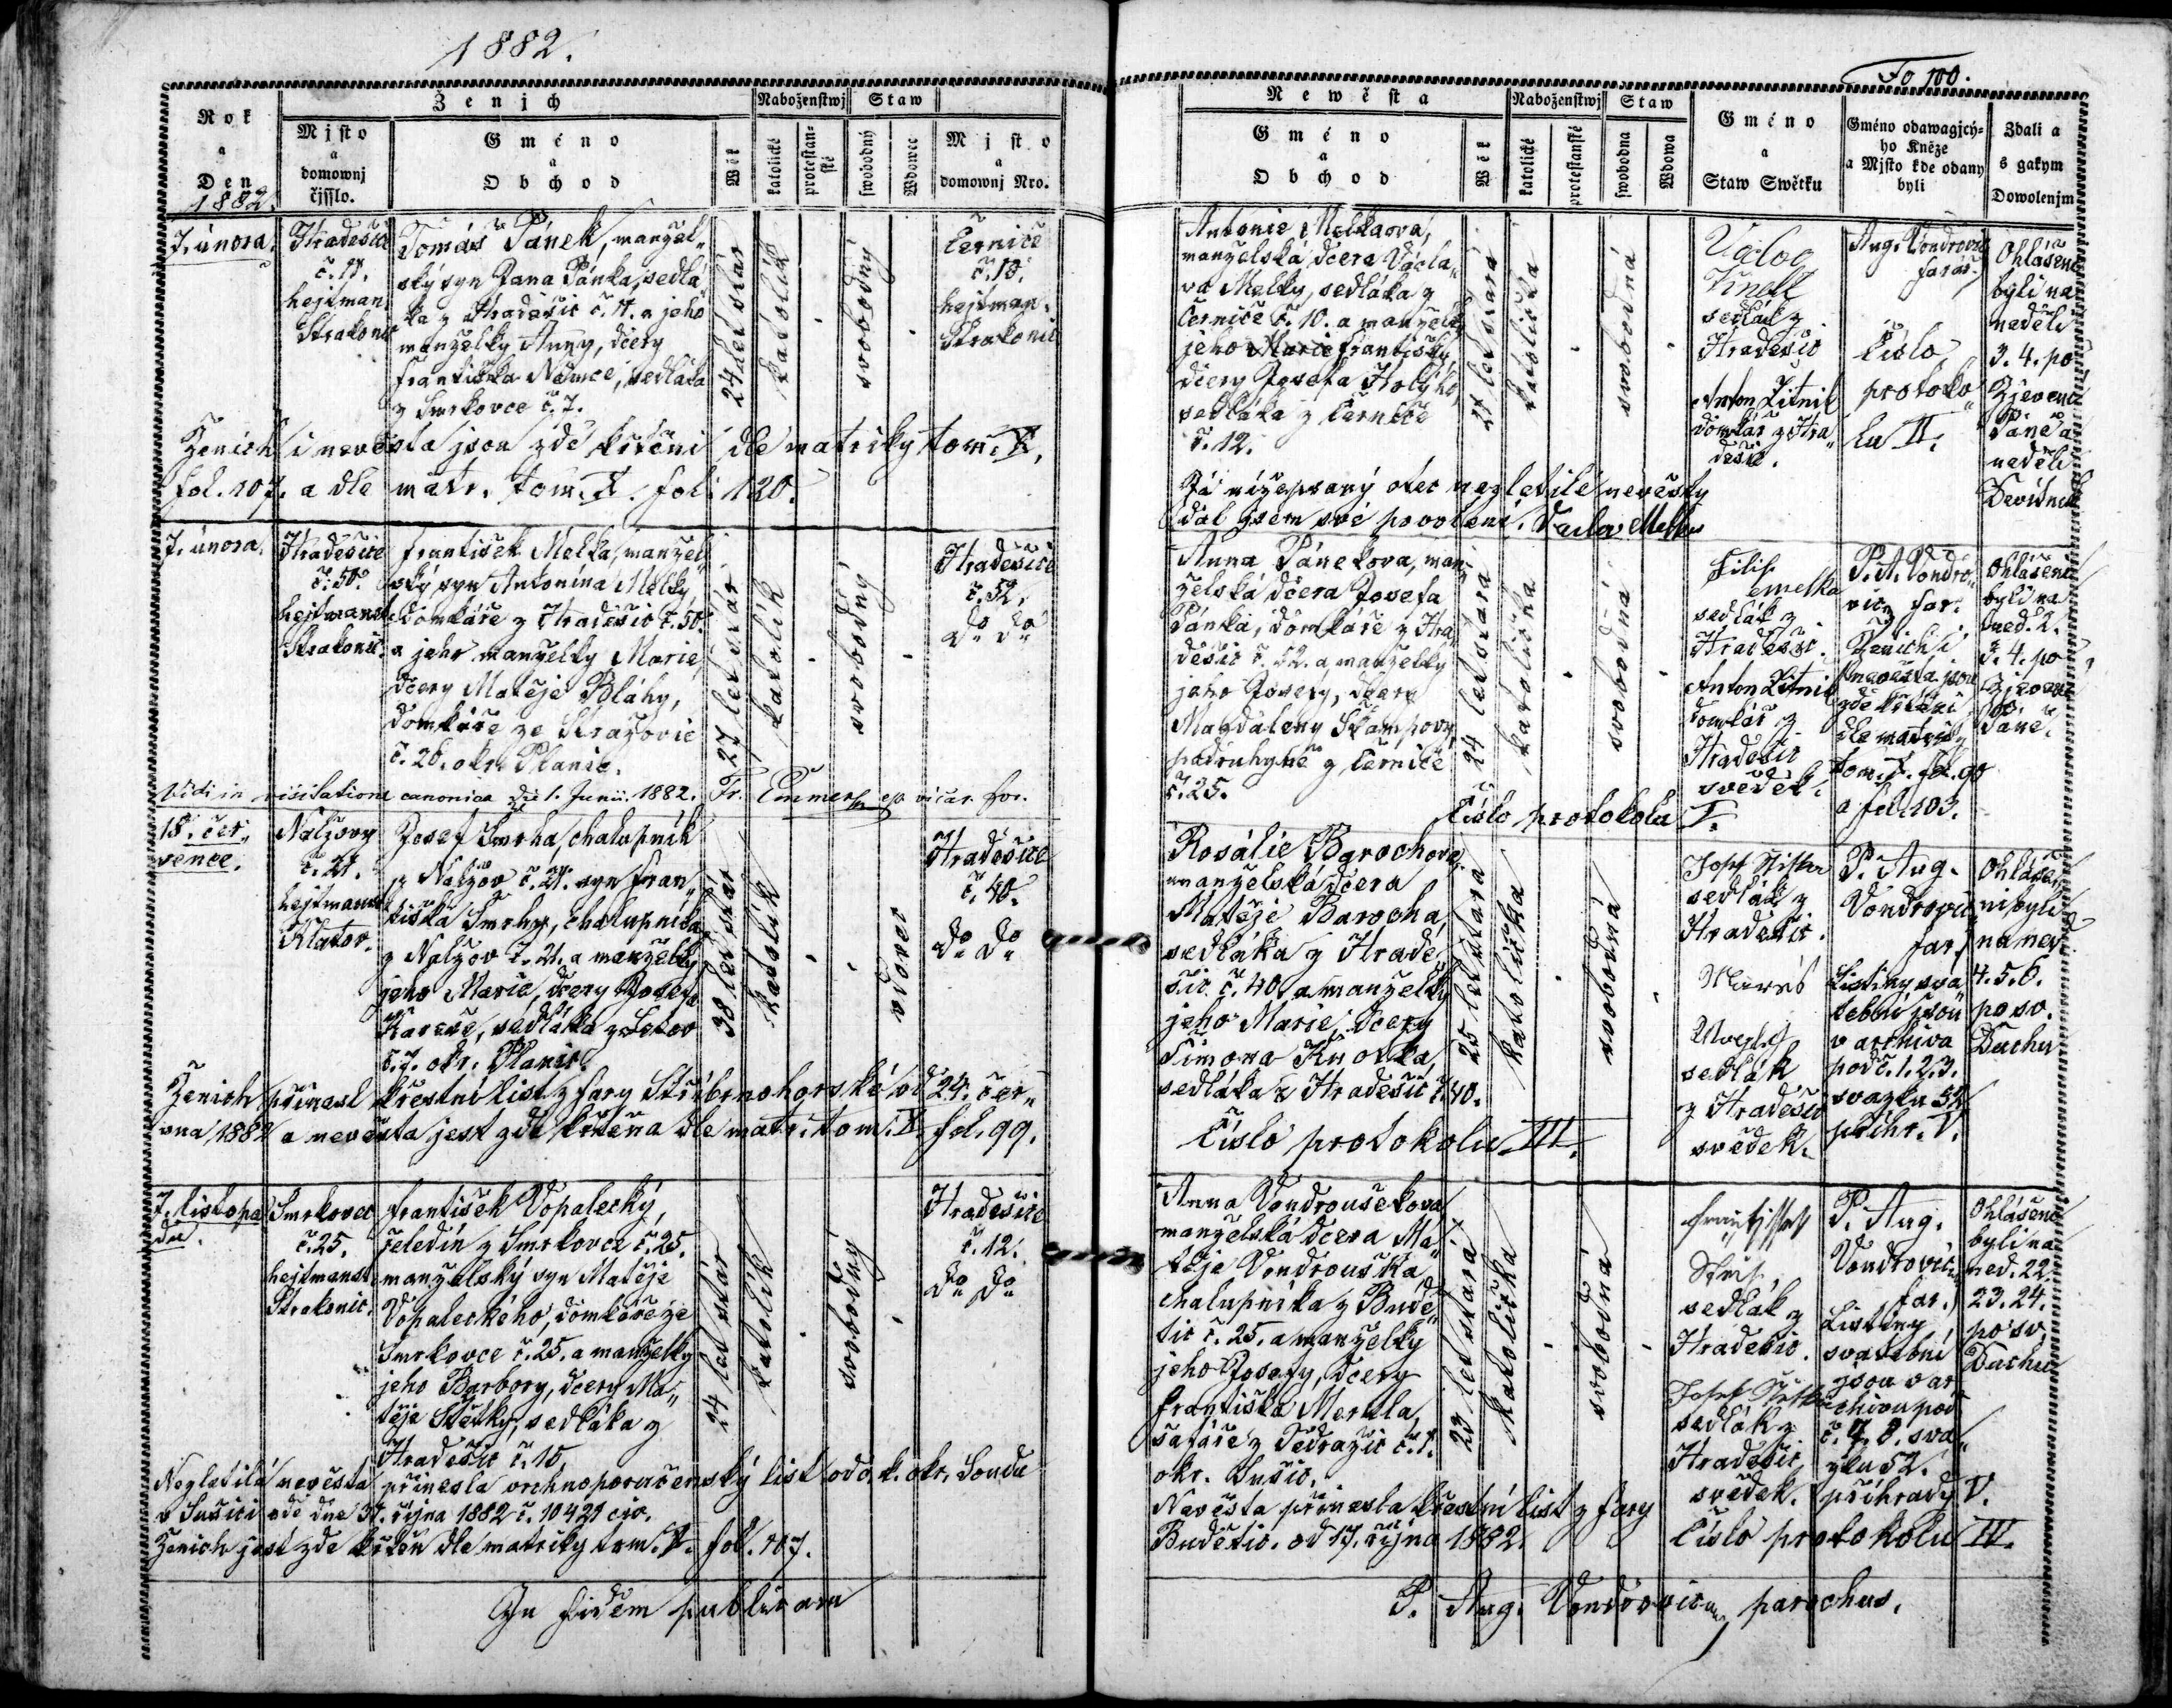 1882.
Fo 100.
Ženich
Náboženstwj
Staw
Rok
a
Den
1882.
Mjsto
a
domownj
čjsslo.
Gméno
a
Obchod
Wěk
katolické
protestan-
ské
swobodný
Wdowec
Mjsto
a
domownj Nro.
7. února.
Hradešice
č. 11.
hejtman.
Strakonic
Tomáš Pánek, manžel„
ský syn Jana Pánka, sedlá„
ka z Hradešic č. 11. a jeho
manželky Anny, dcery
Františka Němce, sedláka
z Smrkovce č. 7.
24 let stár
katolík
svobodný
Černice
č. 10.
hejtman.
Strakonic
Ženich i nevěsta jsou zde křtěni dle matriky tom. X.
fol. 107. a dle matr. tom. X. fol. 120.
7. února.
Hradešice
č. 50.
hejtmanst.
Strakonic.
František Melka, manžel„
ský syn Antonína Melky,
domkáře z Hradešic č. 50.
a jeho manželky Marie,
dcery Matěje Bláhy,
domkáře ze Stražovic
č. 26. okr. Planic.
27 let stár
katolík
svobodný
Hradešice
č. 52.
do do
Vidi in visitatione canonica die 1. Junii. 1882. Fr.
18. čer„
vence.
Nalžovy
č. 21.
hejtmanst
Klatov.
Josef Smrha, chalupník
z Nalžov č. 21. syn Fran„
tiška Smrhy, chalupníka
z Nalžov č. 21. a manželky
jeho Marie, dcery Josefa
Kareše, sedláka z
č. 7. okr. Planic.
38 let stár
katolík
vdovec
Hradešice
č. 40.
do do
Ženich přinesl křestní list z fary Stříbrnohorské od 24. červ„
na 1882 a nevěsta jest zde křtěna dle matr. tom. X. fol. 99.
7. listopa
du.
Smrkovec
č. 25.
hejtmanst
Strakonic.
František Vopalecký,
čeledín z Smrkovce č. 25.
manželský syn Matěje
Vopaleckého, domkáře ze
Smrkovce č. 25. a manželky
jeho Barbory, dcery Ma„
těje Štětky, sedláka z
Hradešic č. 15.
24 let stár
katolík
svobodný
Hradešice
č. 12.
do do
Nezletilá nevěsta přinesla vrchnoporučenský list od c. k. okr. Soudu
v Sušici ode dne 31. října 1882 č. 10421 civ.
Ženich jest zde křtěn dle matriky tom. X. fol. 107.
In fidem publicam
Newěsta
Náboženstwj
Staw
Gméno
a
Obchod
Wěk
katolické
protestanské
swobodna
Wdowa
Gméno
a
Staw Swětku
Gméno odawagjcý-
ho Kněze
a Mjsto kde odany
byli
Zdali a
s gakym
Dowolenjm
Antonie Melkaová,
manželská dcera Václa„
va Melky, sedláka z
Černice č. 10. a manželky
jeho Marie Františky,
dcery Josefa Holýho,
sedláka z Černice
č. 12.
21 let stará
katolička
svobodná
sedlák z
Hradešic
Anton Žitník
domkář z Hra„
dešic.
Aug. Vondrovic
farář
Číslo
protoko„
lu II.
Ohlášeni
byli na
neděli
3. 4. po
Zjevení
Páně a
neděli
Devítník
Já nížepsaný otec nezletilé nevěsty
dal jsem své povolení.
Anna Pánekova, man„
želská dcera Josefa
Pánka, domkáře z Hra„
dešic č. 52. a manželky
jeho Josefy, dcery
Magdaleny
podruhyně z Černice
č. 25.
24 let stará
katolička
svobodná
Filip
sedlák z
Hradešic.
Anton Žitník
domkář z
Hradešic
svědek.
P. A. Vondro„
vic, far.
Ženich i
nevěsta jsou
zde křtěni
dle matriky
tom. X. fol. 90
a fol. 103.
Ohlášeni
byli na
ned. 2.
3. 4. po
Zjevení
Páně.
Číslo protokolu I.
Rosálie Barochova,
manželská dcera
Matěje Barocha,
sedláka z Hrade„
šic č. 40. a manželky
jeho Marie, dcery
Šimona
sedláka z Hradešic č. 40.
25 let stará
katolička
svobodná
sedlák z
Hradešic.
sedlák
z Hradešic
svědek.
P. Aug.
Vondrovic
far.
Listiny sva
tební jsou
v archivu
pod č. 1. 2. 3.
svazku 52
přihr. V.
Ohláše„
ni byli
na ned.
4. 5. 6.
po sv.
Duchu
Číslo protokolu III.
Anna Vondroušekova
manželská dcera Ma„
těje Vondrouška,
chalupníka z Budě„
tic č. 25. a manželky
jeho Josefy, dcery
Františka Merkla,
šafáře z Tedražic č. 1.
okr. Sušic.
23 let stará
katolička
svobodná
sedlák z
Hradešic.
sedlák z
Hradešic,
svědek.
P. Aug.
Vondrovic
far.
Listiny
svatební
jsou v ar
chivu pod
č. 7. 8. sva„
zku 52.
přihrady V.
Ohlášeni
byli na
ned. 22.
23. 24.
po sv.
Duchu
Nevěsta přinesla křestní list z fary
Budětic. od 17. října 1882.
Číslo protokolu IV.
P. Aug. Vondrovic, parochus.